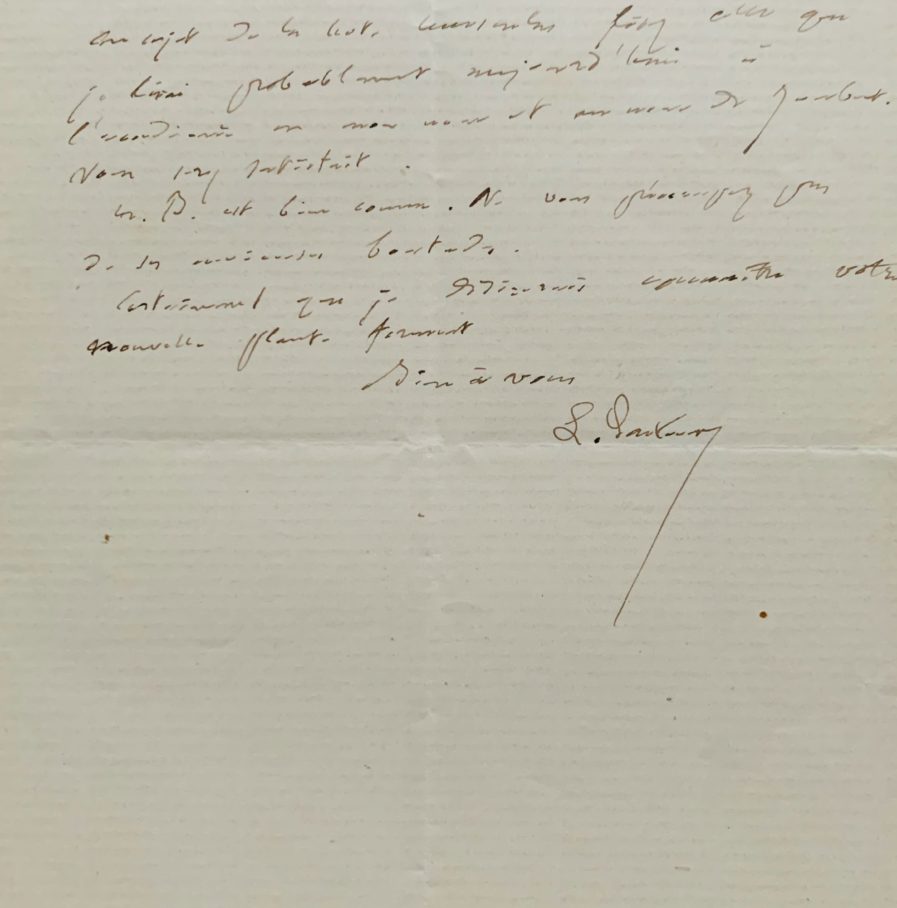 au sujet de la note ci-incluse que
je lirai probablement aujourd'hui à
l'académie en mon nom et au nom de Joubert.
Vous serez satisfait.
M. B. est bien connu. Ne vous préoccupez pas
de ses boutades.
Certainement que je désirerais connaître votre
nouvelle plante ferment
Bien à vous
L. Pasteur